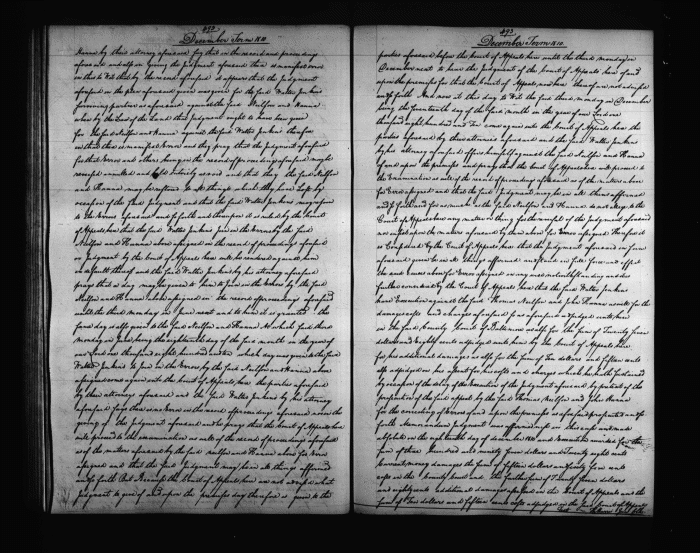 492
December Term 1810
Hanna by their attorney aforesaid say that in the record and proceedings
aforesaid and also in giving the judgment aforesaid there is manifest error
in this to Wit that by the record aforesaid it appears that the judgment
aforesaid in the plea aforesaid given was given for the said Walter Jenkins
surviving partner as aforesaid against the said Neilson and Hanna
when by the Law of the Land that judgment ought to have been given
for the said Neilson and Hanna against the said Walter Jenkins therefore
in that there is manifest error and they pray that the judgment aforesaid
for that Error and others being in the record & proceedings aforesaid may be
reversed annulled and held entirely as void and that they the said Neilson
and Hanna may be restored to all things which they have lost by
occasion of the said judgment and that the said Walter Jenkins may rejoin
to the Errors aforesaid and so forth and thereupon it is ruled by the Court
of Appeals here that the said Walter Jenkins join in the Errors by the said
Neilson and Hanna above assigned in the record & proceedings aforesaid
or judgment by the Court of Appeals here will be rendered against him
in default thereof and the said Walter Jenkins by his attorney aforesaid
prays that a day may be given to him to join in the Errors by the said
Neilson and Hanna above assigned in the record & proceedings aforesaid
until the third monday in June next and to him it is granted the
same day is also given to the said Neilson and Hanna At which said third
monday in June being the eighteenth day of the said month in the year of
our Lord one thousand eight hundred and ten which day was given to the said
Walter Jenkins to join in the Errors by the said Neilson and Hanna above
assigned come again into the Court of Appeals here the parties aforesaid
by their attornies aforesaid and the said Walter Jenkins by his attorney
aforesaid says there is no Error in the record & proceedings aforesaid nor in the
giving of the judgment aforesaid and he prays that the Court of Appeals here
will proceed to the examination as well of the record & proceedings aforesaid
as of the matters aforesaid by the said Neilson and Hanna above for Error
assigned and that the said judgment may be in all things affirmed
and so forth But Because the Court of Appeals here are not advised what
judgment to give of and upon the premises day therefore is given to the
493
December Term 1810
parties aforesaid before the Court of Appeals here until the third monday in
December next to hear the judgment of the Court of Appeals here of and
upon the premises for that the Court of Appeals now here thereof are not advised
and so forth And now at this day to Wit the said third monday in December
being the seventeenth day of the said month in the year of our Lord one
thousand eight hundred and Ten come again into the Court of Appeals here the
parties aforesaid by their attornies aforesaid and the said Walter Jenkins
by his attorney aforesaid
of and upon the premises and prays that the Court of Appeals here will proceed to
the examination as well of the record & proceedings aforesaid as of the matters above
for Error assigned and that the said judgment may be in all things affirmed
and so forth and for as much as the said Neilson and Hanna do not alledge to the
Court of Appeals here any matter or thing for the reversal of the judgment aforesaid
are insufficient the matters aforesaid by them above for Errors assigned Therefore it
is Considered by the Court of Appeals here that the judgment aforesaid in form
aforesaid given be in all things affirmed and stand in full force and effect
the said causes above for Error assigned in any wise notwithstanding and it is
further considered by the Court of Appeals here that the said Walter Jenkins
have Execution against the said Thomas Neilson and John Hanna as well for the
damages costs and charges aforesaid in form aforesaid adjudged unto him
in the said County Court of Baltimore as also for the sum of Twenty four
dollars and Eighty cents adjudged unto him by the Court of Appeals here
for his additional damages as also for the sum of Ten dollars and fifteen cents
also adjudged in his assent for his costs and charges which he hath sustained
by occasion of the delay of the Execution of the judgment aforesaid by pretext of the
prosecution of the said appeal by the said Thomas Neilson and John Hanna
for the correcting of Errors of and upon the premises aforesaid prosecuted and so
forth Memorandum judgment was affirmed nisi in this case and made
absolute on the eighteenth day of december 1810
sum of three hundred and ninety seven dollars and Twenty eight cents
Current money damages the sum of fifteen dollars and forty four cents
costs in the County Court and the further sum of Twenty four dollars
and eighty cents additional damages assessed in the Court of Appeals and the
sum of Ten dollars and fifteen cents costs adjudged in the said Court of Appeals